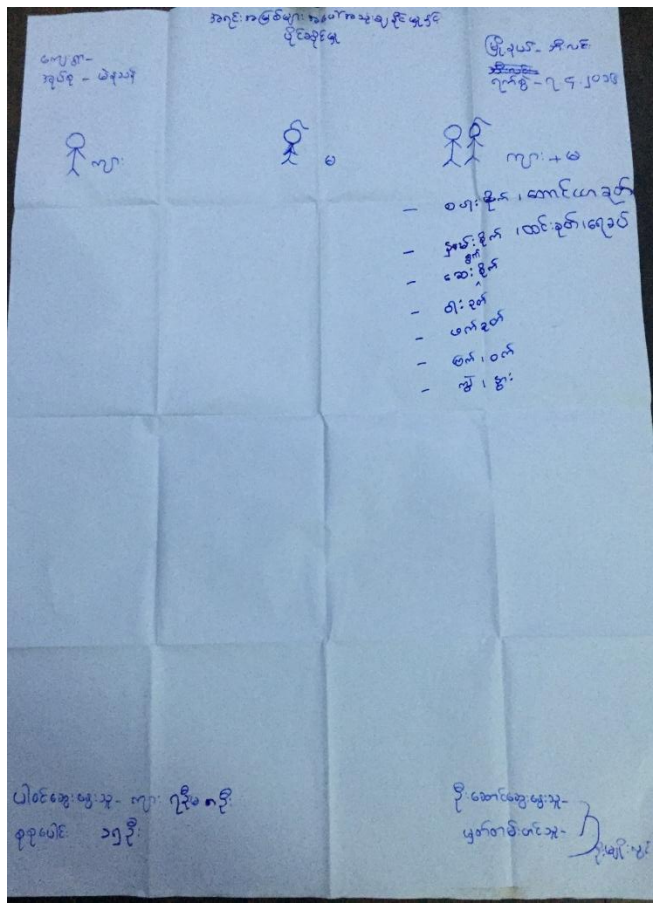 အရင်းအမြစ်များ အပေါ်အသုံးချနိုင်မှုနှင့်
ပိုင်ဆိုင်မှု
ကျေးရွာ-
အုပ်စု -
မြို့နယ် - ဘီးလင်း
ရက်စွဲ - ၇.၄.၂၀၁၆
ကျား
မ
ကျား + မ
- စပါးစိုက်၊ တောင်ယာခုတ်
- နှမ်းစိုက်၊ ထင်းခုတ်၊ ရေခပ်
- ဆေးရွက်စိုက်
- ဝါးခုတ်
- ဖက်ခုတ်
- ကြက်၊ ဝက်
- ကျွဲ၊ နွား
ပါဝင်ဆွေးနွေးသူ - ကျား ၇ဦး မ ၈ဦး
စုစုပေါင်း ၁၅ဦး
ဦးဆောင်ဆွေးနွေးသူ-
မှတ်တမ်းတင်သူ-